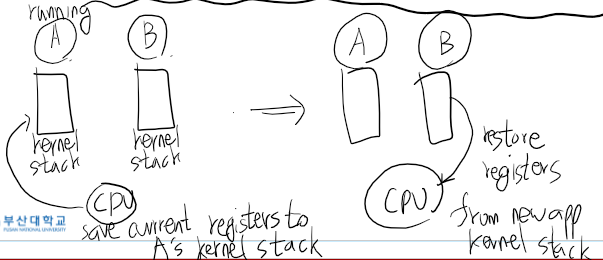 running
A
B
kernel
stack
kernel
stack
CPU
save current registers to
A's kernel stack
A
B
restore
registers
CPU
from new app
kernel stack
부산대학교
PUSAN NATIONAL UNIVERSITY